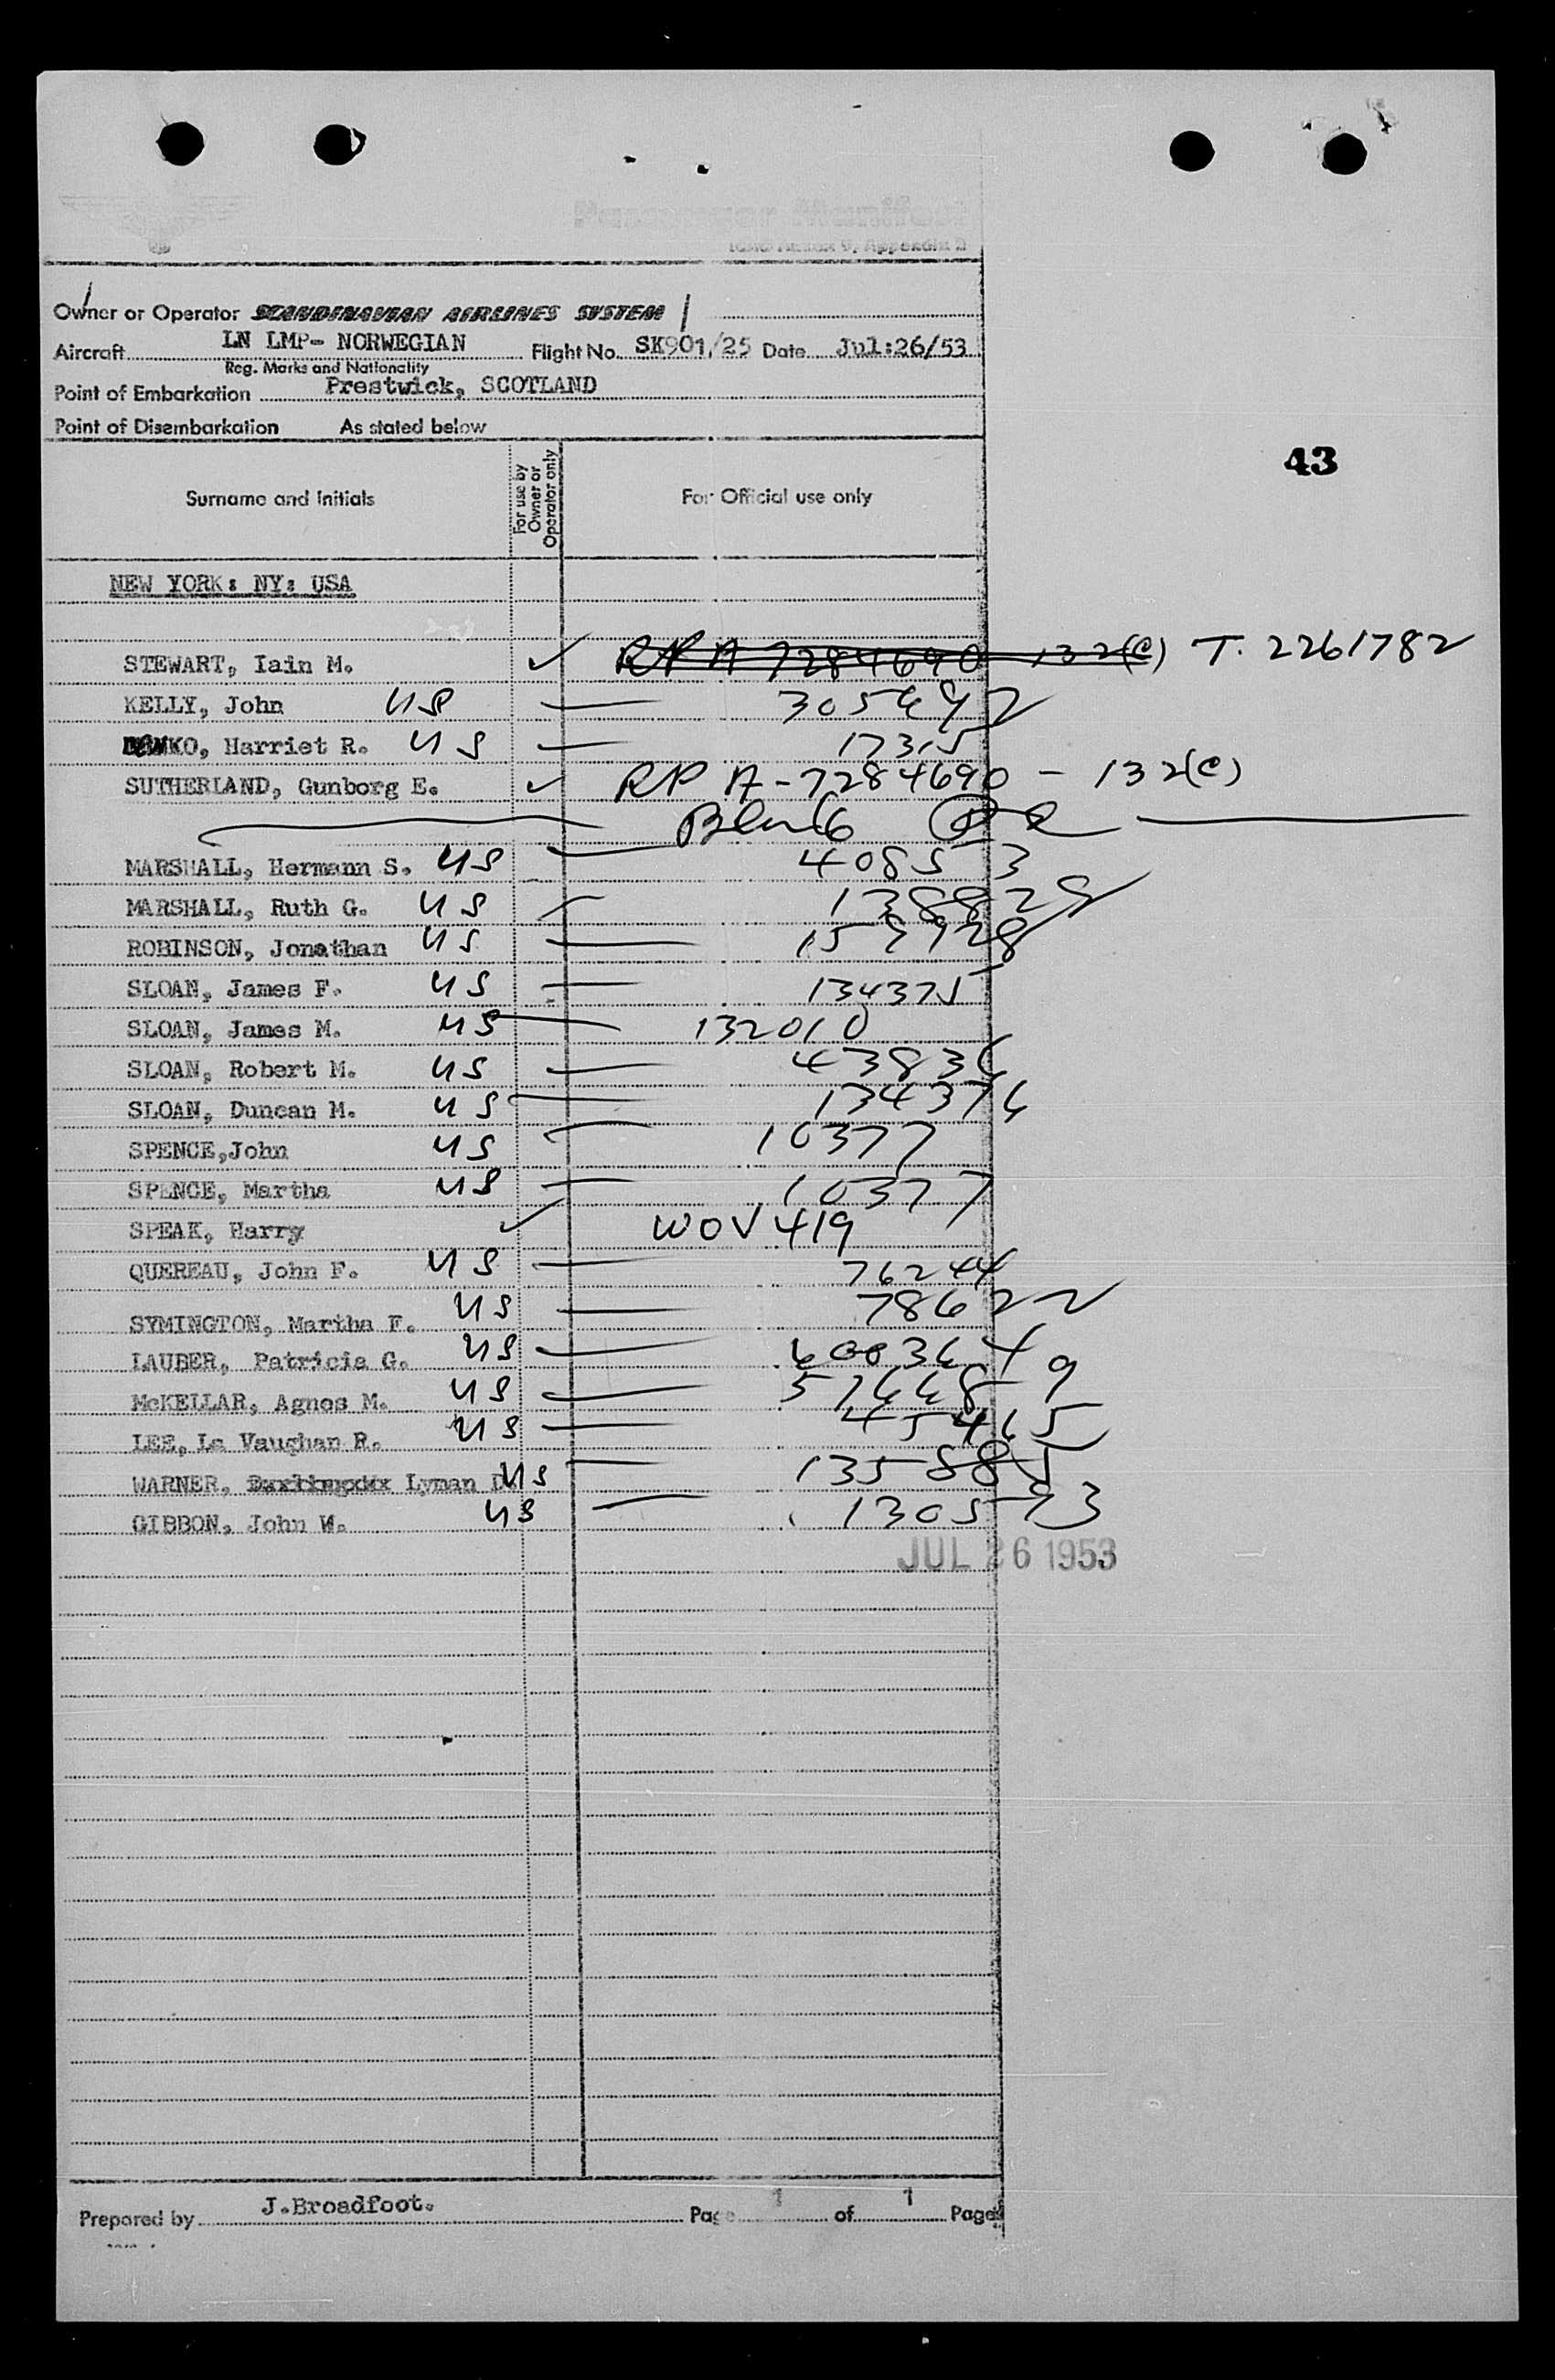 Passenger Manifest
ICAO Annex 9, Appendix 2
Owner or Operator SCANDINAVIAN AIRLINES SYSTEM
Aircraft LN LMP- NORWEGIAN Flight No. SK901/25 Date Jul:26/53
Reg. Marks and Nationality
Point of Embarkation Prestwick, SCOTLAND
Point of Disembarkation As stated below
43
Surname and Initials For use by Owner or Operator only For Official use only
NEW YORK: NY: USA
STEWART, Iain M. ✓ RP A 7284690 132(c) T. 2261782
KELLY, John US
KO, Harriet R. US
SUTHERLAND, Gunborg E. ✓ RP A-7284690 - 132(c)
MARSHALL, Hermann S. US 408553
MARSHALL, Ruth G. US
ROBINSON, Jonathan US
SLOAN, James F. US 134375
SLOAN, James M. US 132010
SLOAN, Robert M. US 43836
SLOAN, Duncan M. US 134376
SPENCE,John US 10377
SPENCE, Martha US 10377
SPEAK, Harry ✓ WOV 419
QUEREAU, John F. US 76244
SYMINGTON, Martha F. US 78622
LAUBER, Patricia G. US
McKELLAR, Agnes M. US
LEE, La Vaughan R. US 45465
WARNER, Lyman D. US 135885
GIBBON, John W. US 130593
JUL 26 1953
Prepared by J.Broadfoot. Page 1 of 1 Pages